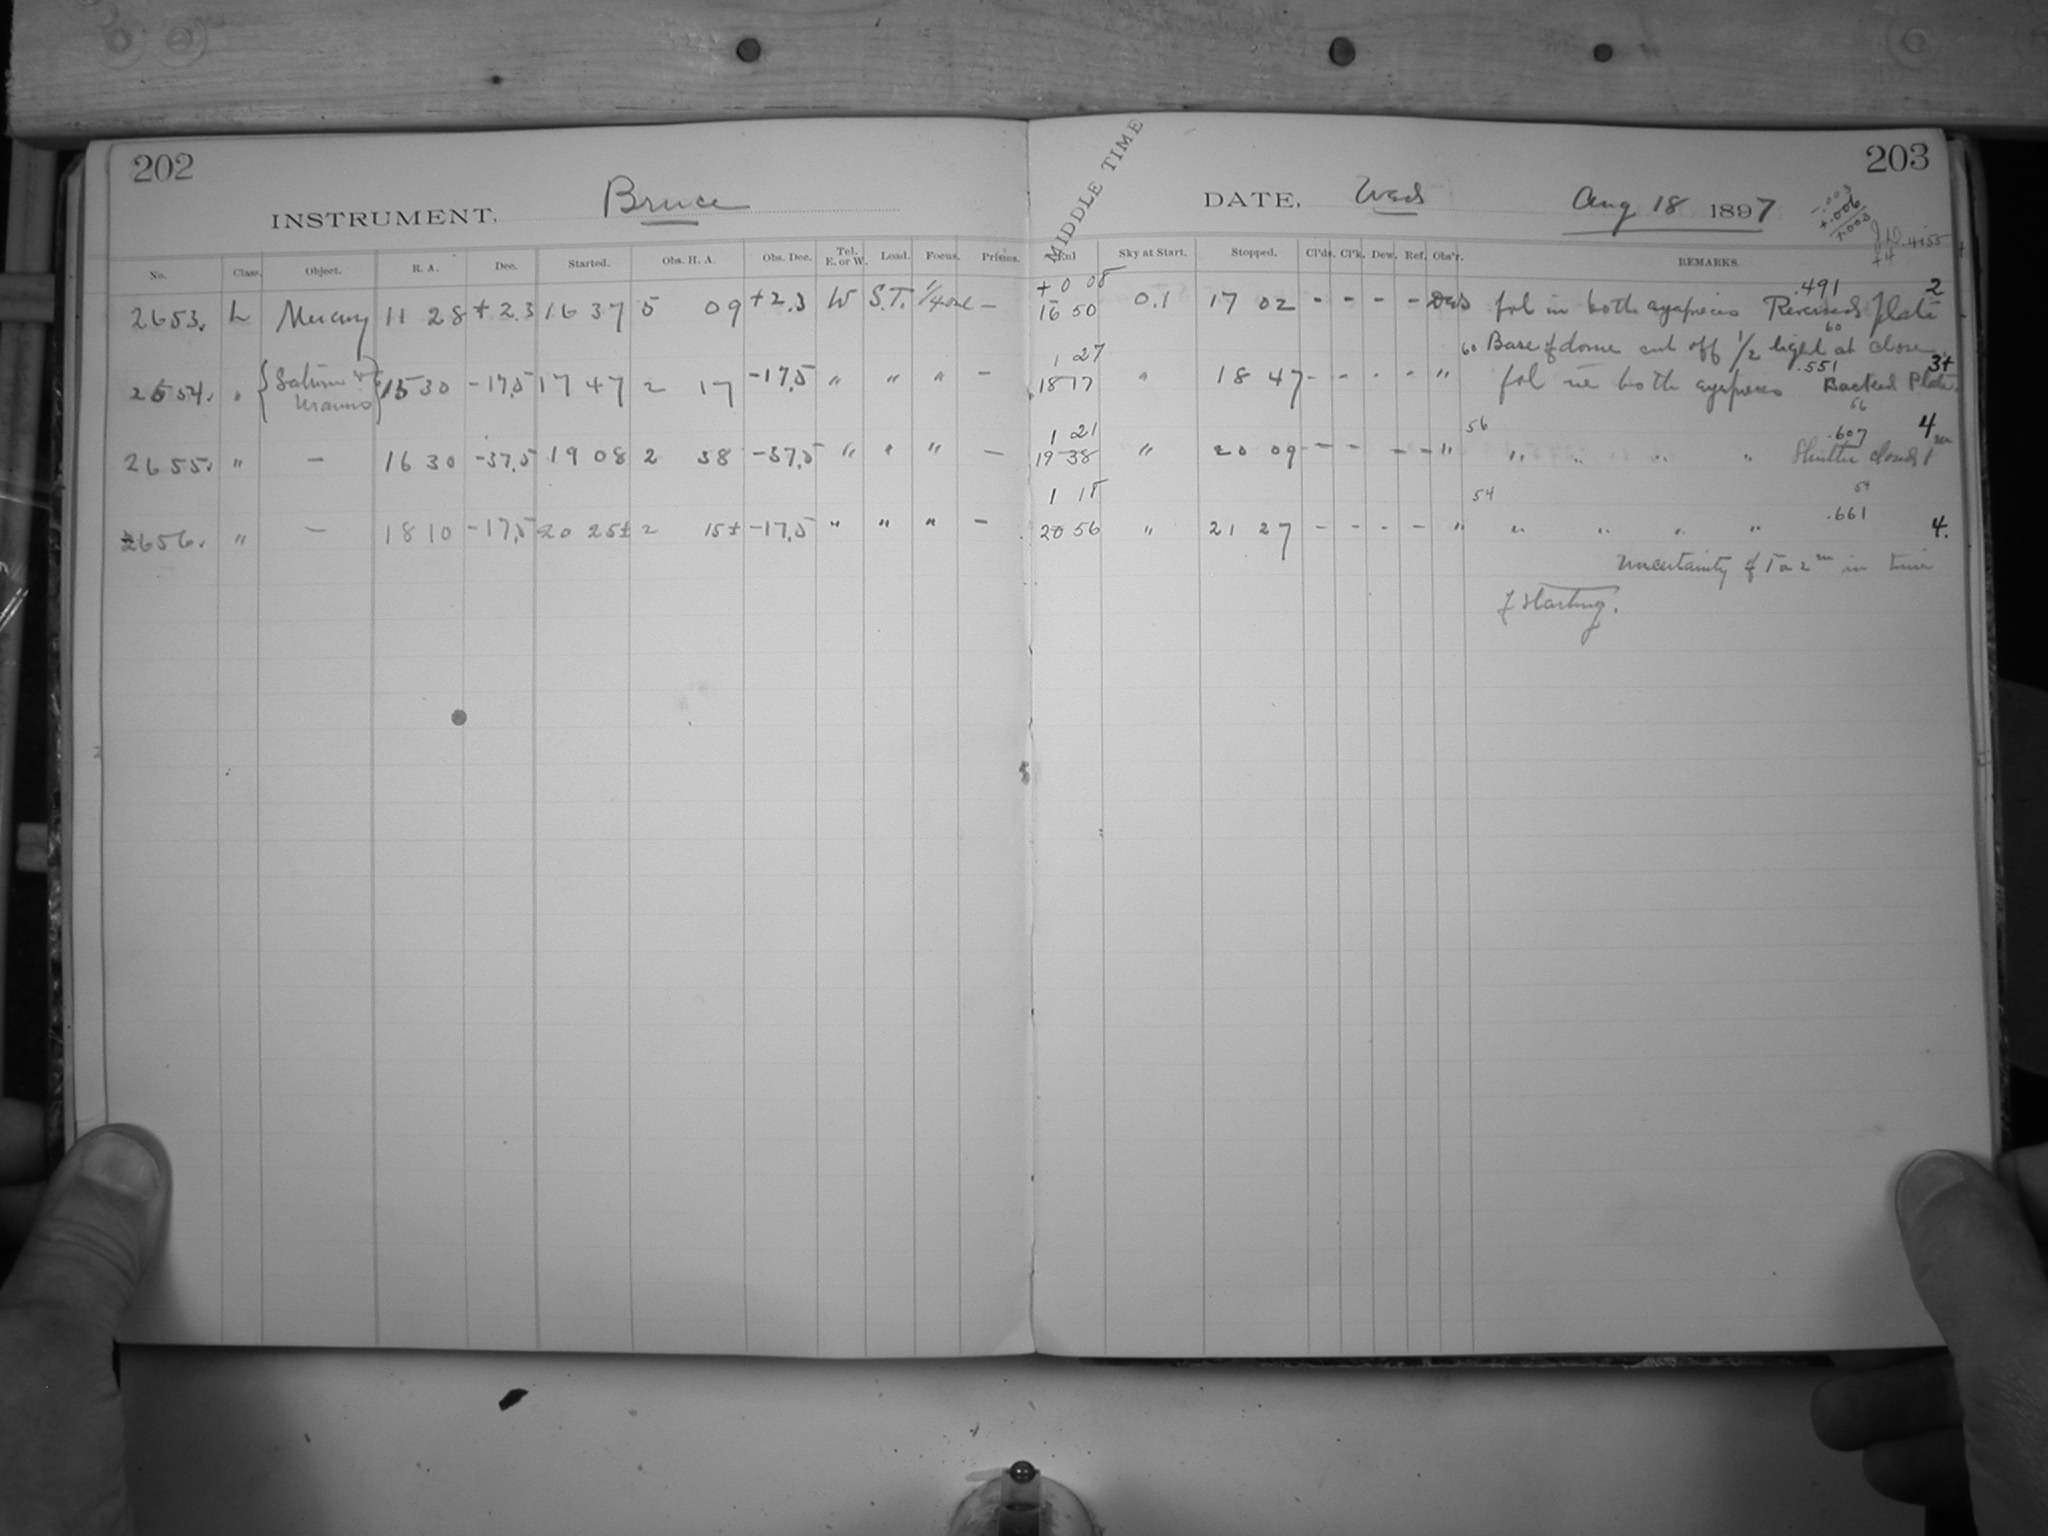 202
203
INSTRUMENT, Bruce
MIDDLE TIME
DATE, Wed Aug 18 1897
-.003
+.006
+.003
J.D. 4155
No. Class. Object. R. A. Dec. Started. Obs. H. A. Obs. Dec. Tel. E. or W. Load. Focus. Prisms. Sky at Start. Stopped. Cl'ds. Cl'k. Dew. Ref. Obs'r. REMARKS.
+0 05 .491 2
2653. L Mercury 11 28 +2.3 1637 5 09 +2.3 W S.T. – 16 50 0.1 17 02 - - - - fol in both eyepieces Reversed Plate
60 Base of dome cut off 1/2 light at close
1 27 60 .551 3+
2654. " {Saturn & Uranus} 15 30 -17.5 1747 2 17 -17.5 " " " – 1817 " 18 47 - - - - " fol in both eyepieces Backed Plate.
1 21 56 56 .607 4
2655. " – 16 30 -37.5 1908 2 38 -37.5 " " " – 19 38 " 20 09 - - - - " " " " " Shutter closed 1m
1 15 54 54 .661
2656. " – 18 10 -17.5 20 25± 2 15± -17.5 " " " – 20 56 " 21 27 - - - - " " " " " 4.
Uncertainty of 1 or 2m in time
of starting.